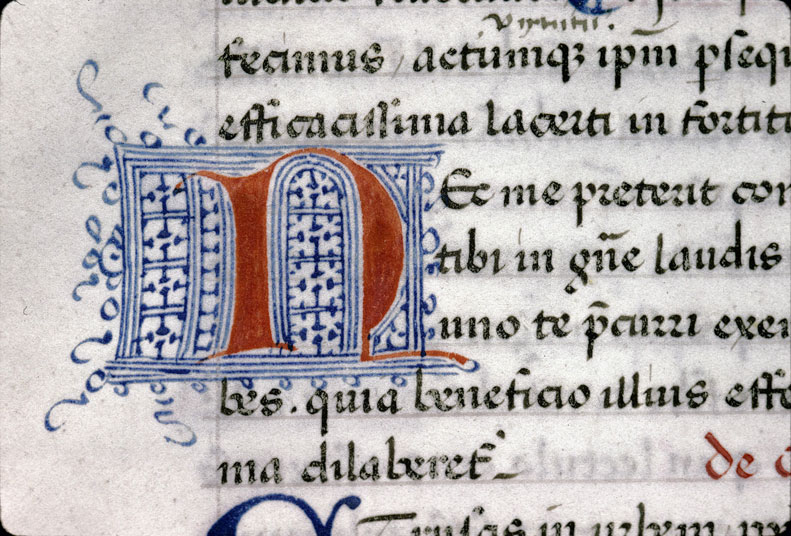 virtuti.
fecimus, actumqꝫ ip̄m ꝑseq
efficacissima lacerti in fortit
NEc me preterit con
tibi in gn̄e laudis
uno te p̄curri exe
bes. quia beneficio illius effe
ma dilaberet᷑
de
in urbem